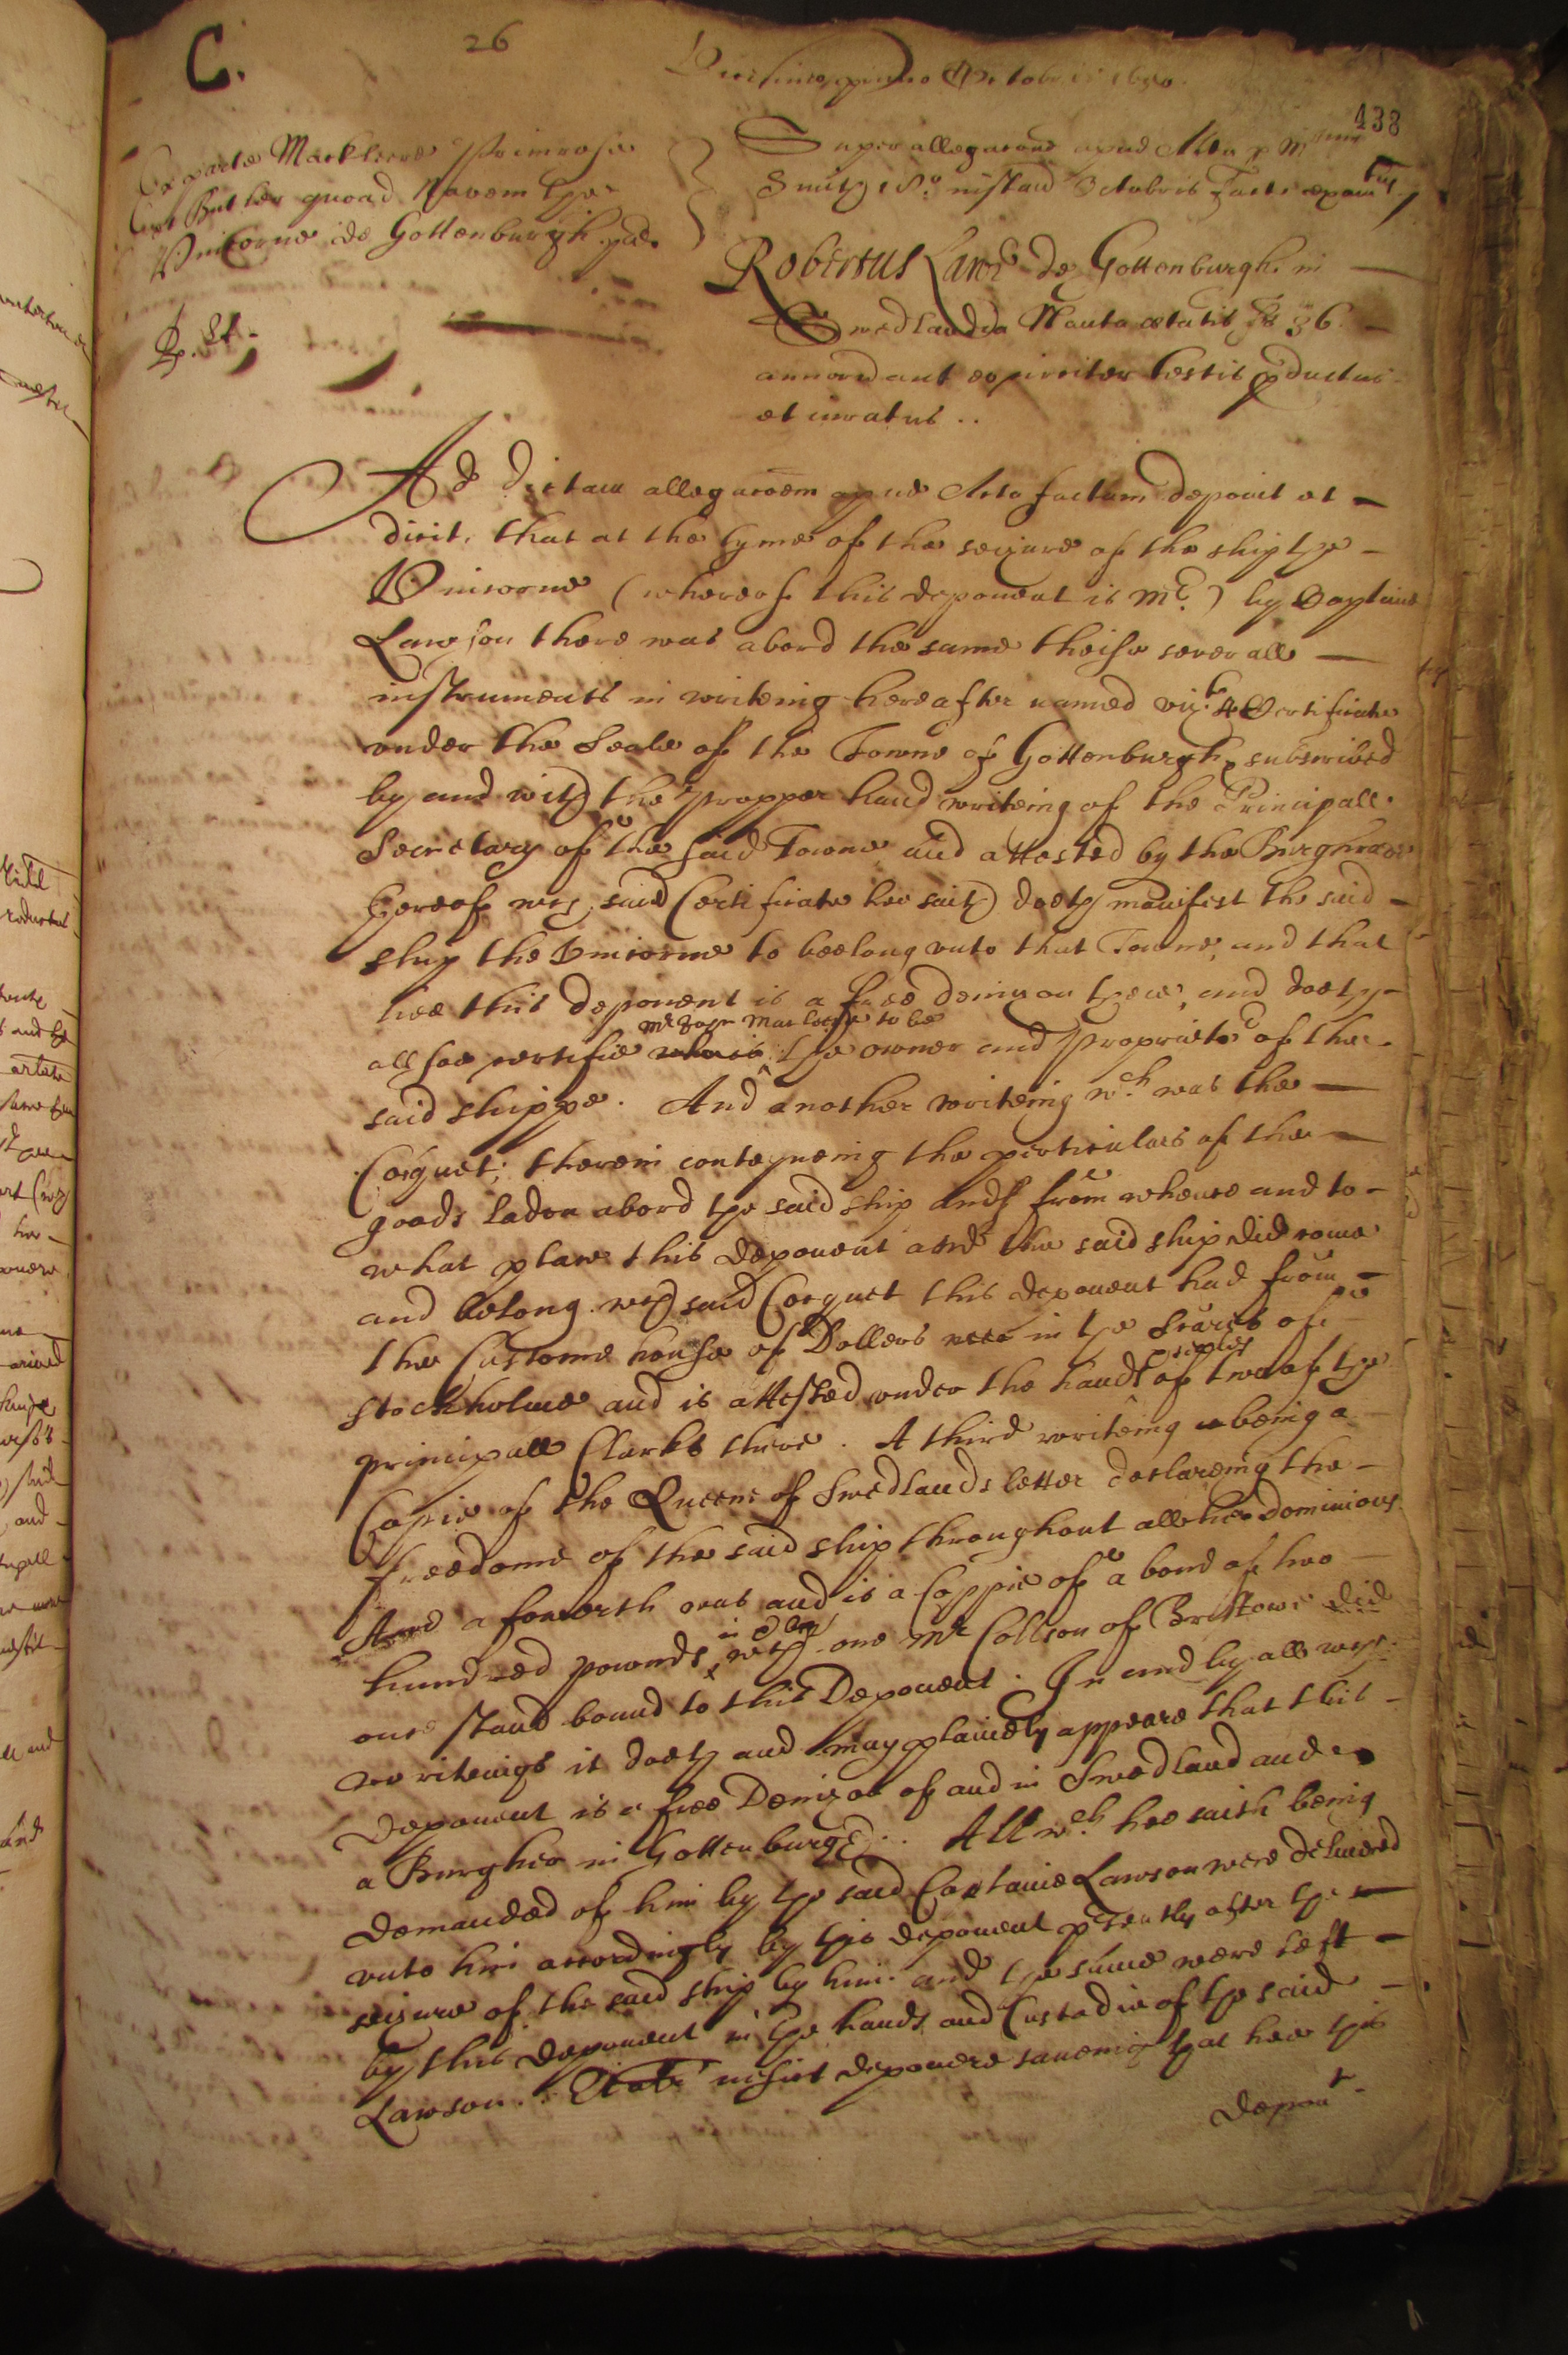 C.
26
primo Octobris 1650.
438
Ex parte Mackleere Primrose
et Butler quoad Navem the
Vnicorne de Gottenburgh pred.
Rp. 2t.
Super allegacone apud Acta p Mrum
Smith 18o. instan Octobris facta examt
Robertus de Gottenburgh in
Swedlandia Nauta ætatis 36.
annorum aut eo circiter testis pductus
et iuratus ..
Ad dictam allegacoem apud Acta factam deponit et
dicit, that at the tyme of the seizure of the ship the
Vnicorne (whereof this deponent is Mr.) by Captaine
Lawson there was abord the same theise severall
instruments in writeing hereafter named vizt. A Certificate
vnder the Seale of the Towne of Gottenburgh subscribed
by and with the propper hand writeing of the Principall
Secretary of the said Towne and attested by the
thereof wch said Certificate hee saith doeth manifest the said
ship the Vnicorne to beelong vnto that Towne, and that
hee this deponent is a free denizon there, and doeth
Mr to bee
allsoe certifie the owner and Proprietor of the
said shippe. And another writeing wch. was the
Cocquet; therein conteyneing the perticulars of the
goods laden abord the said ship and from whence and to
what place this deponent and the said ship did come
and belong. wch said Cocquet this deponent had from
the Custome house of Dollers in the of
Stockholme and is attested vnder the hands of two of the
principall Clarks there. A third writeing being a
Copie of the Queene of Swedlands letter declareing the
freedome of the said ship throughout all her dominions
And a fowerth was and is a Coppie of a bond of two
hundred pownds in wch one Mr Collson of Bristowe did
once stand bound to this Deponent. In and by all wch
writeings it doeth and may plainely appeare that this
deponent is a free Denizon of and in Swedland and
a Burgher in Gottenburgh. All wch. hee saith being
demanded of him by the said Captaine Lawson were delivered
vnto him accordingly by this deponent psently after the
seizure of the said ship by him. and the same were left
by this deponent in the hands and Custodie of the said
Lawson. nescit deponere saveing that hee this
depont.